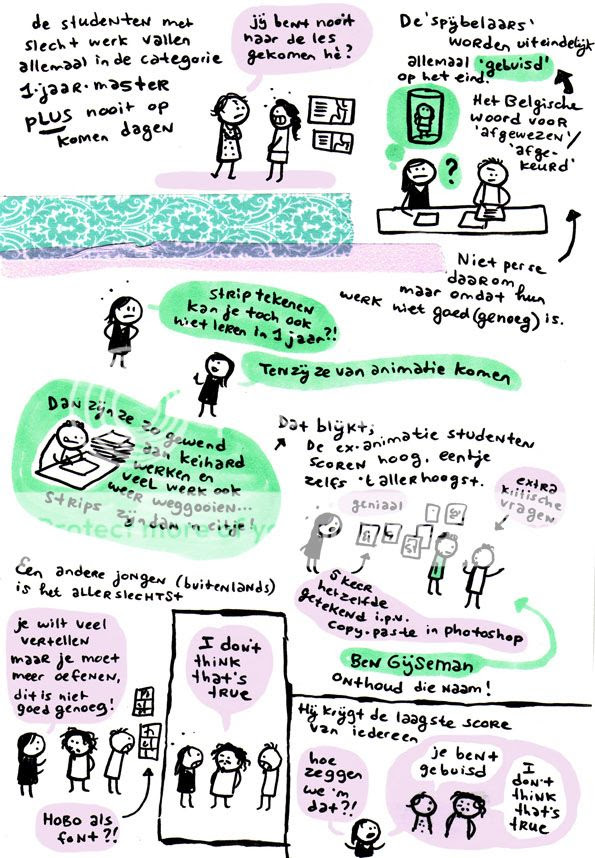 de studenten met
slecht werk vallen
allemaal in de categorie
1-jaar-master
PLUS nooit op
komen dagen
jij bent nooit
naar de les
gekomen hè?
De 'spijbelaars'
worden uiteindelijk
allemaal 'gebuisd'
op het eind.
Het Belgische
woord voor
'afgewezen'/
'afge-
keurd'
?
Niet per se
daarom
maar omdat hun
werk niet goed (genoeg) is.
strip tekenen
kan je toch ook
niet leren in 1 jaar?!
Tenzij ze van animatie komen
Dan zijn ze zo gewend
aan keihard
werken en
veel werk ook
weer weggooien...
strips zijn dan 'n eitje!
Protect more of yo
Dat blijkt;
De ex-animatie studenten
scoren hoog, eentje
zelfs 't allerhoogst.
geniaal
extra
kritische
vragen
5 keer
hetzelfde
getekend i.p.v.
copy-paste in photoshop
Ben Gijseman
onthoud die naam!
Een andere jongen (buitenlands)
is het allerslechtst
je wilt veel
vertellen
maar je moet
meer oefenen,
dit is niet
goed genoeg!
Hobo als
font?!
I don't
think
that's
true
Hij krijgt de laagste score
van iedereen
hoe
zeggen
we 'm
dat?!
je bent
gebuisd
I
don't
think
that's
true